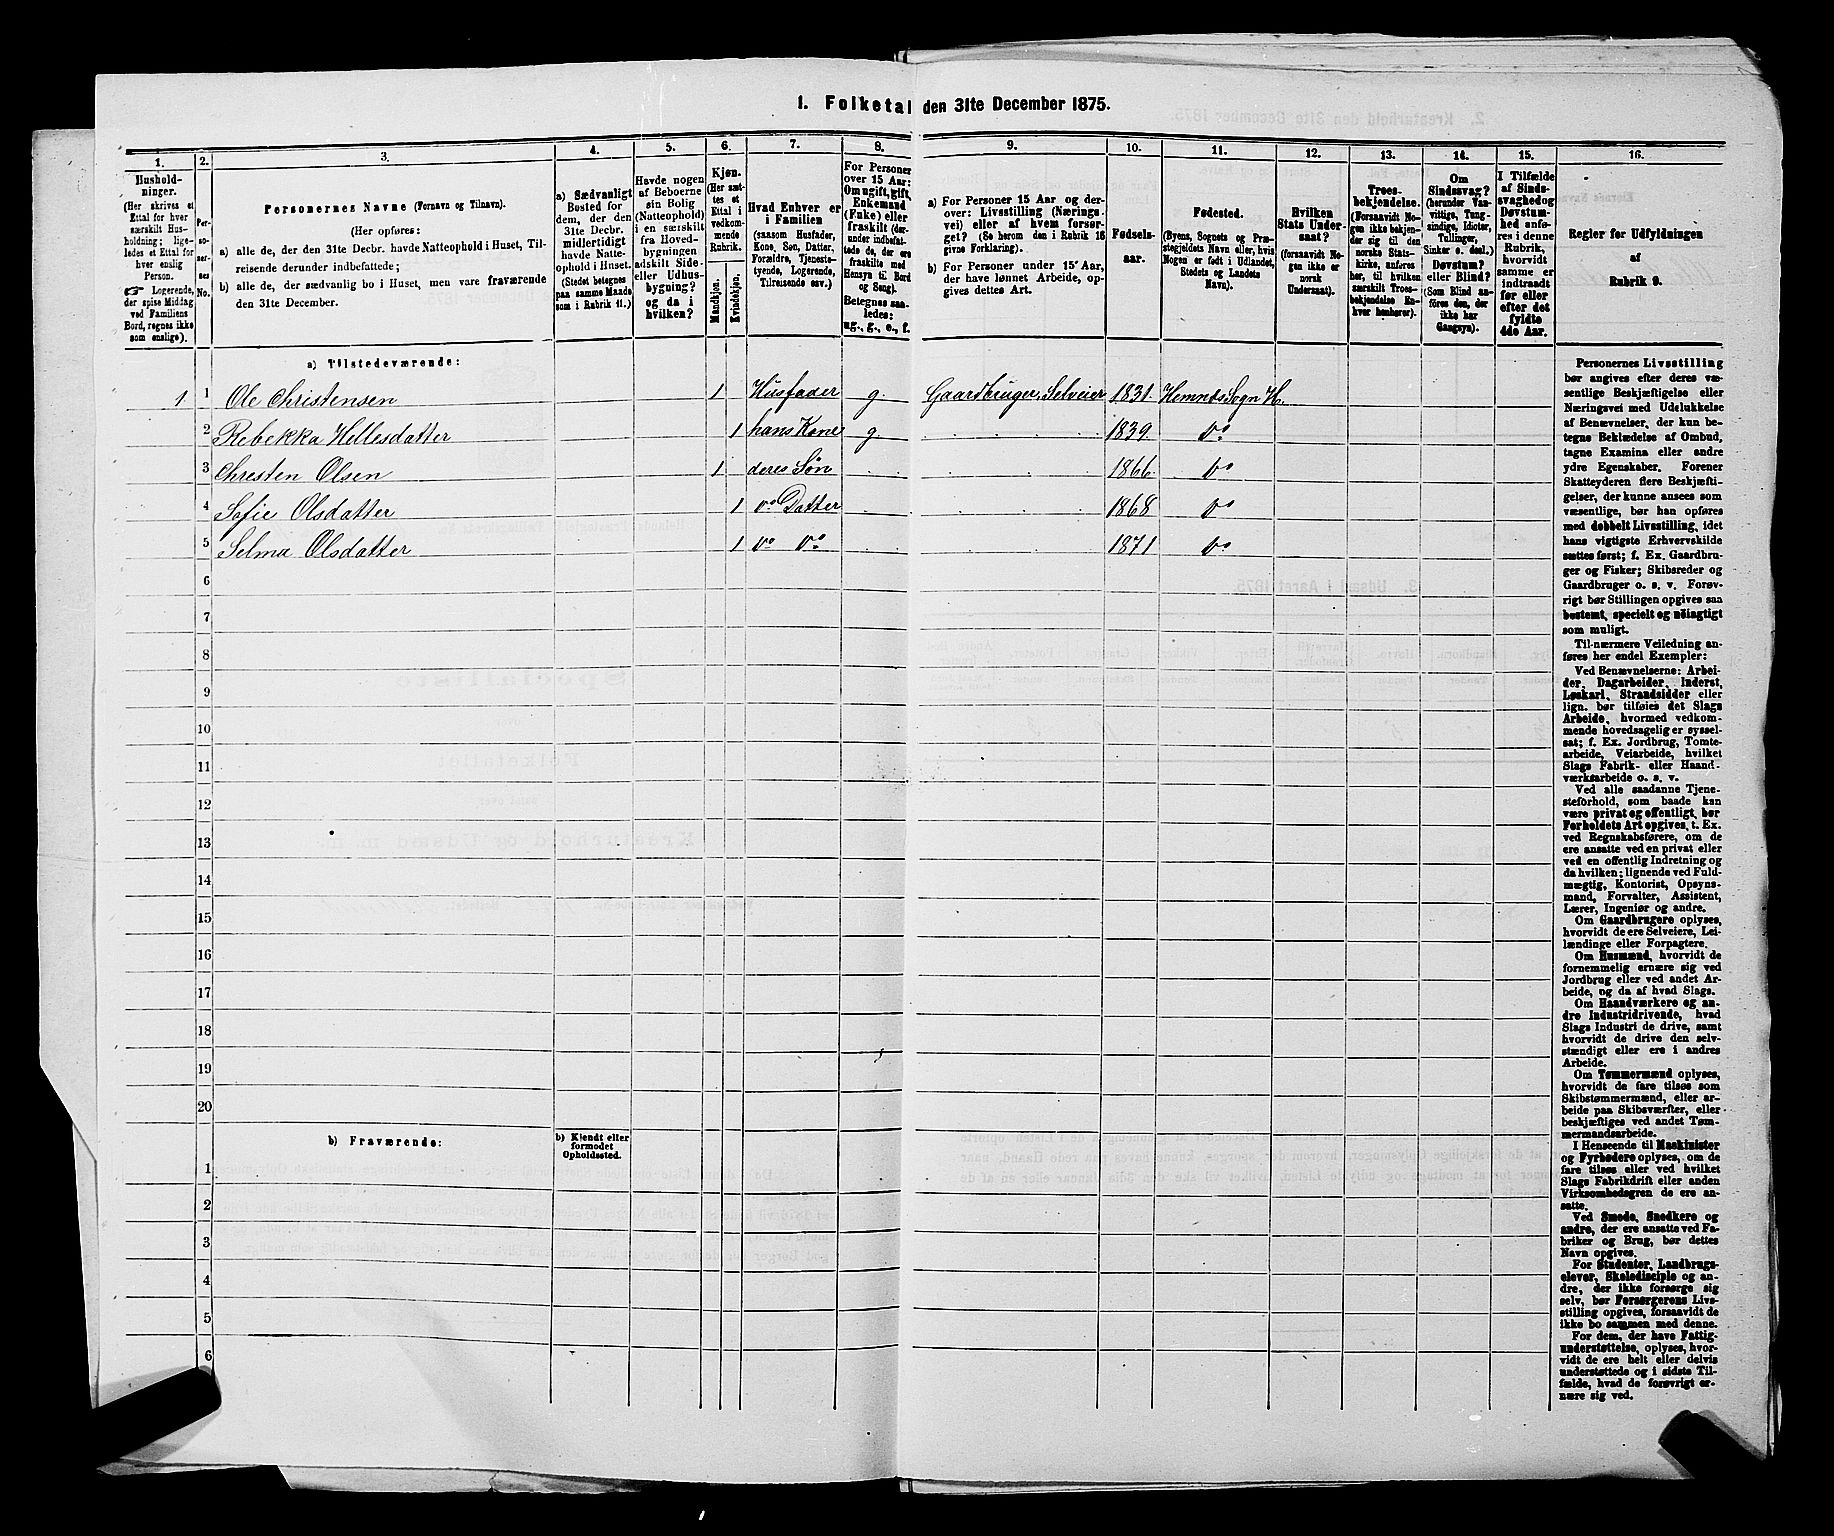 1. Folketal den 31te December 1875.
1.
2.
3.
4.
5.
6.
7.
8.
9.
10.
11.
12.
13.
14.
15.
16.
Hushold-
ninger.
(Her skrives et
Ettal for hver
særskilt Hus-
holdning; lige-
ledes et Ettal for
hver enslig
Person.
☛ Logerende,
der spise Middag
ved Familiens
Bord, regnes ikke
som enslige).
Per-
so-
ner-
nes
No.
Personernes Navne (Fornavn og Tilnavn).
(Her opføres:
a) alle de, der den 31te Decbr. havde Natteophold i Huset, Til-
reisende derunder indbefattede;
b) alle de, der sædvanlig bo i Huset, men vare fraværende
den 31te December.
a) Sædvanligt
Bosted for
dem, der den
31te Decbr.
midlertidigt
havde Natte-
ophold i Huset.
(Stedet betegnes
paa samme Maade
som i Rubrik 11.)
Havde nogen
af Beboerne
sin Bolig
(Natteophold)
i en særskilt
fra Hoved-
bygningen
adskilt Side-
eller Udhus-
bygning?
og da i
hvilken?
Kjøn.
(Her sæt-
tes et
Ettal i
vedkom-
mende
Rubrik.
Mandkjøn.
Kvindekjøn.
Hvad Enhver er
i Familien
(saasom Husfader,
Kone, Søn, Datter,
Forældre, Tjeneste-
tyende, Logerende,
Tilreisende osv.)
For Personer
over 15 Aar:
Om ugift, gift,
Enkemand
(Enke) eller
fraskilt (der-
under indbefat-
tede de, der ere
fraskilte med
Hensyn til Bord
og Seng).
Betegnes saa-
ledes:
ug., g., e., f.
a) For Personer 15 Aar og der-
over: Livsstilling (Nærings-
vei) eller af hvem forsør-
get? (Se herom den i Rubrik 16
givne Forklaring).
b) For Personer under 15 Aar,
der have lønnet Arbeide, op-
gives dettes Art.
Fødsels-
aar.
Fødested.
(Byens, Sognets og Præ-
stegjeldets Navn eller, hvis
Nogen er født i Udlandet,
Stedets og Landets
Navn).
Hvilken
Stats Under-
saat?
(forsaavidt No-
gen ikke er
norsk
Undersaat).
Troes-
bekjendelse.
(Forsaavidt No-
gen ikke bekjen-
der sig til den
norske Stats-
kirke, anføres
her, til hvilken
særskilt Troes-
bekjendelse En-
hver henhører).
Om
Sindssvag?
(herunder Van-
vittige, Tung-
sindige, Idioter,
Tullinger,
Sinker o. desl.)
Døvstum?
eller Blind?
(Som Blind an-
føres den, der
ikke har
Gangsyn).
I Tilfælde
af Sinds-
svaghed og
Døvstum-
hed anfø-
res i denne
Rubrik,
hvorvidt
samme er
indtraadt
før eller
efter det
fyldte
4de Aar.
Regler for Udfyldningen
af
Rubrik 9.
a) Tilstedeværende:
1 1 Ole Christensen 1 Husfader g. Gaardbruger, Selveier 1831. Hemnæs Sogn H.
2 Rebekka Hellesdatter 1 hans Kone g. 1839. do
3 Chresten Olsen 1 deres Søn 1866. do
4 Sofie Olsdatter 1 do Datter 1868 do
5 Selma Olsdatter 1 do do 1871 do
6
7
8
9
10
11
12
13
14
15
16
17
18
19
20
b) Fraværende:
b) Kjendt eller
formodet
Opholdssted.
1
2
3
4
5
6
Personernes Livsstilling
bør angives efter deres væ-
sentlige Beskjæftigelse eller
Næringsvei med Udelukkelse
af Benævnelser, der kun be-
tegne Beklædelse af Ombud,
tagne Examina eller andre
ydre Egenskaber. Forener
Skatteyderen flere Beskjæfti-
gelser, der kunne ansees som
væsentlige, bør han opføres
med dobbelt Livsstilling, idet
hans vigtigste Erhvervskilde
sættes først; f. Ex. Gaardbru-
ger og Fisker; Skibsreder og
Gaardbruger o. s. v. Forøv-
rigt bør Stillingen opgives saa
bestemt, specielt og nøiagtigt
som muligt.
Til nærmere Veiledning an-
føres her endel Exempler:
Ved Benævnelserne: Arbei-
der, Dagarbeider, Inderst,
Løskarl, Strandsidder eller
lign. bør tilføies det Slags
Arbeide, hvormed vedkom-
mende hovedsagelig er syssel-
sat; f. Ex. Jordbrug, Tomte-
arbeide, Veiarbeide, hvilket
Slags Fabrik- eller Haand-
værksarbeide o. s. v.
Ved alle saadanne Tjene-
steforhold, som baade kan
være privat og offentligt, bør
Forholdets Art opgives, t. Ex.
ved Regnskabsførere, om de
ere ansatte ved en privat eller
ved en offentlig Indretning og
da hvilken; lignende ved Fuld-
mægtig, Kontorist, Opsyns-
mand, Forvalter, Assistent,
Lærer, Ingeniør og andre.
Om Gaardbrugere oplyses,
hvorvidt de ere Selveiere, Lei-
lændinge eller Forpagtere.
Om Husmænd, hvorvidt de
fornemmelig ernære sig ved
Jordbrug eller ved andet Ar-
beide, og da af hvad Slags.
Om Haandværkere og an-
dre Industridrivende, hvad
Slags Industri de drive, samt
hvorvidt de drive den selv-
stændigt eller ere i andres
Arbeide.
Om Tømmermænd oplyses,
hvorvidt de fare tilsøs som
Skibstømmermænd, eller ar-
beide paa Skibsværfter, eller
beskjæftiges ved andet Tøm-
mermandsarbeide.
I Henseende til Maskinister
og Fyrbødere oplyses, om de
fare tilsøs eller ved hvilket
Slags Fabrikdrift eller anden
Virksomhedsgren de ere an-
satte.
Ved Smede, Snedkere og
andre, der ere ansatte ved Fa-
briker og Brug, bør dettes
Navn opgives.
For Studenter, Landbrugs-
elever, Skoledisciple og an-
dre, der ikke forsørge sig
selv, bør Forsørgerens Livs-
stilling opgives, forsaavidt de
ikke bo sammen med denne.
For dem, der have Fattig-
understøttelse, oplyses, hvor-
vidt de ere helt eller delvis
understøttede og i sidste Til-
fælde, hvad de forøvrigt er-
nære sig ved.